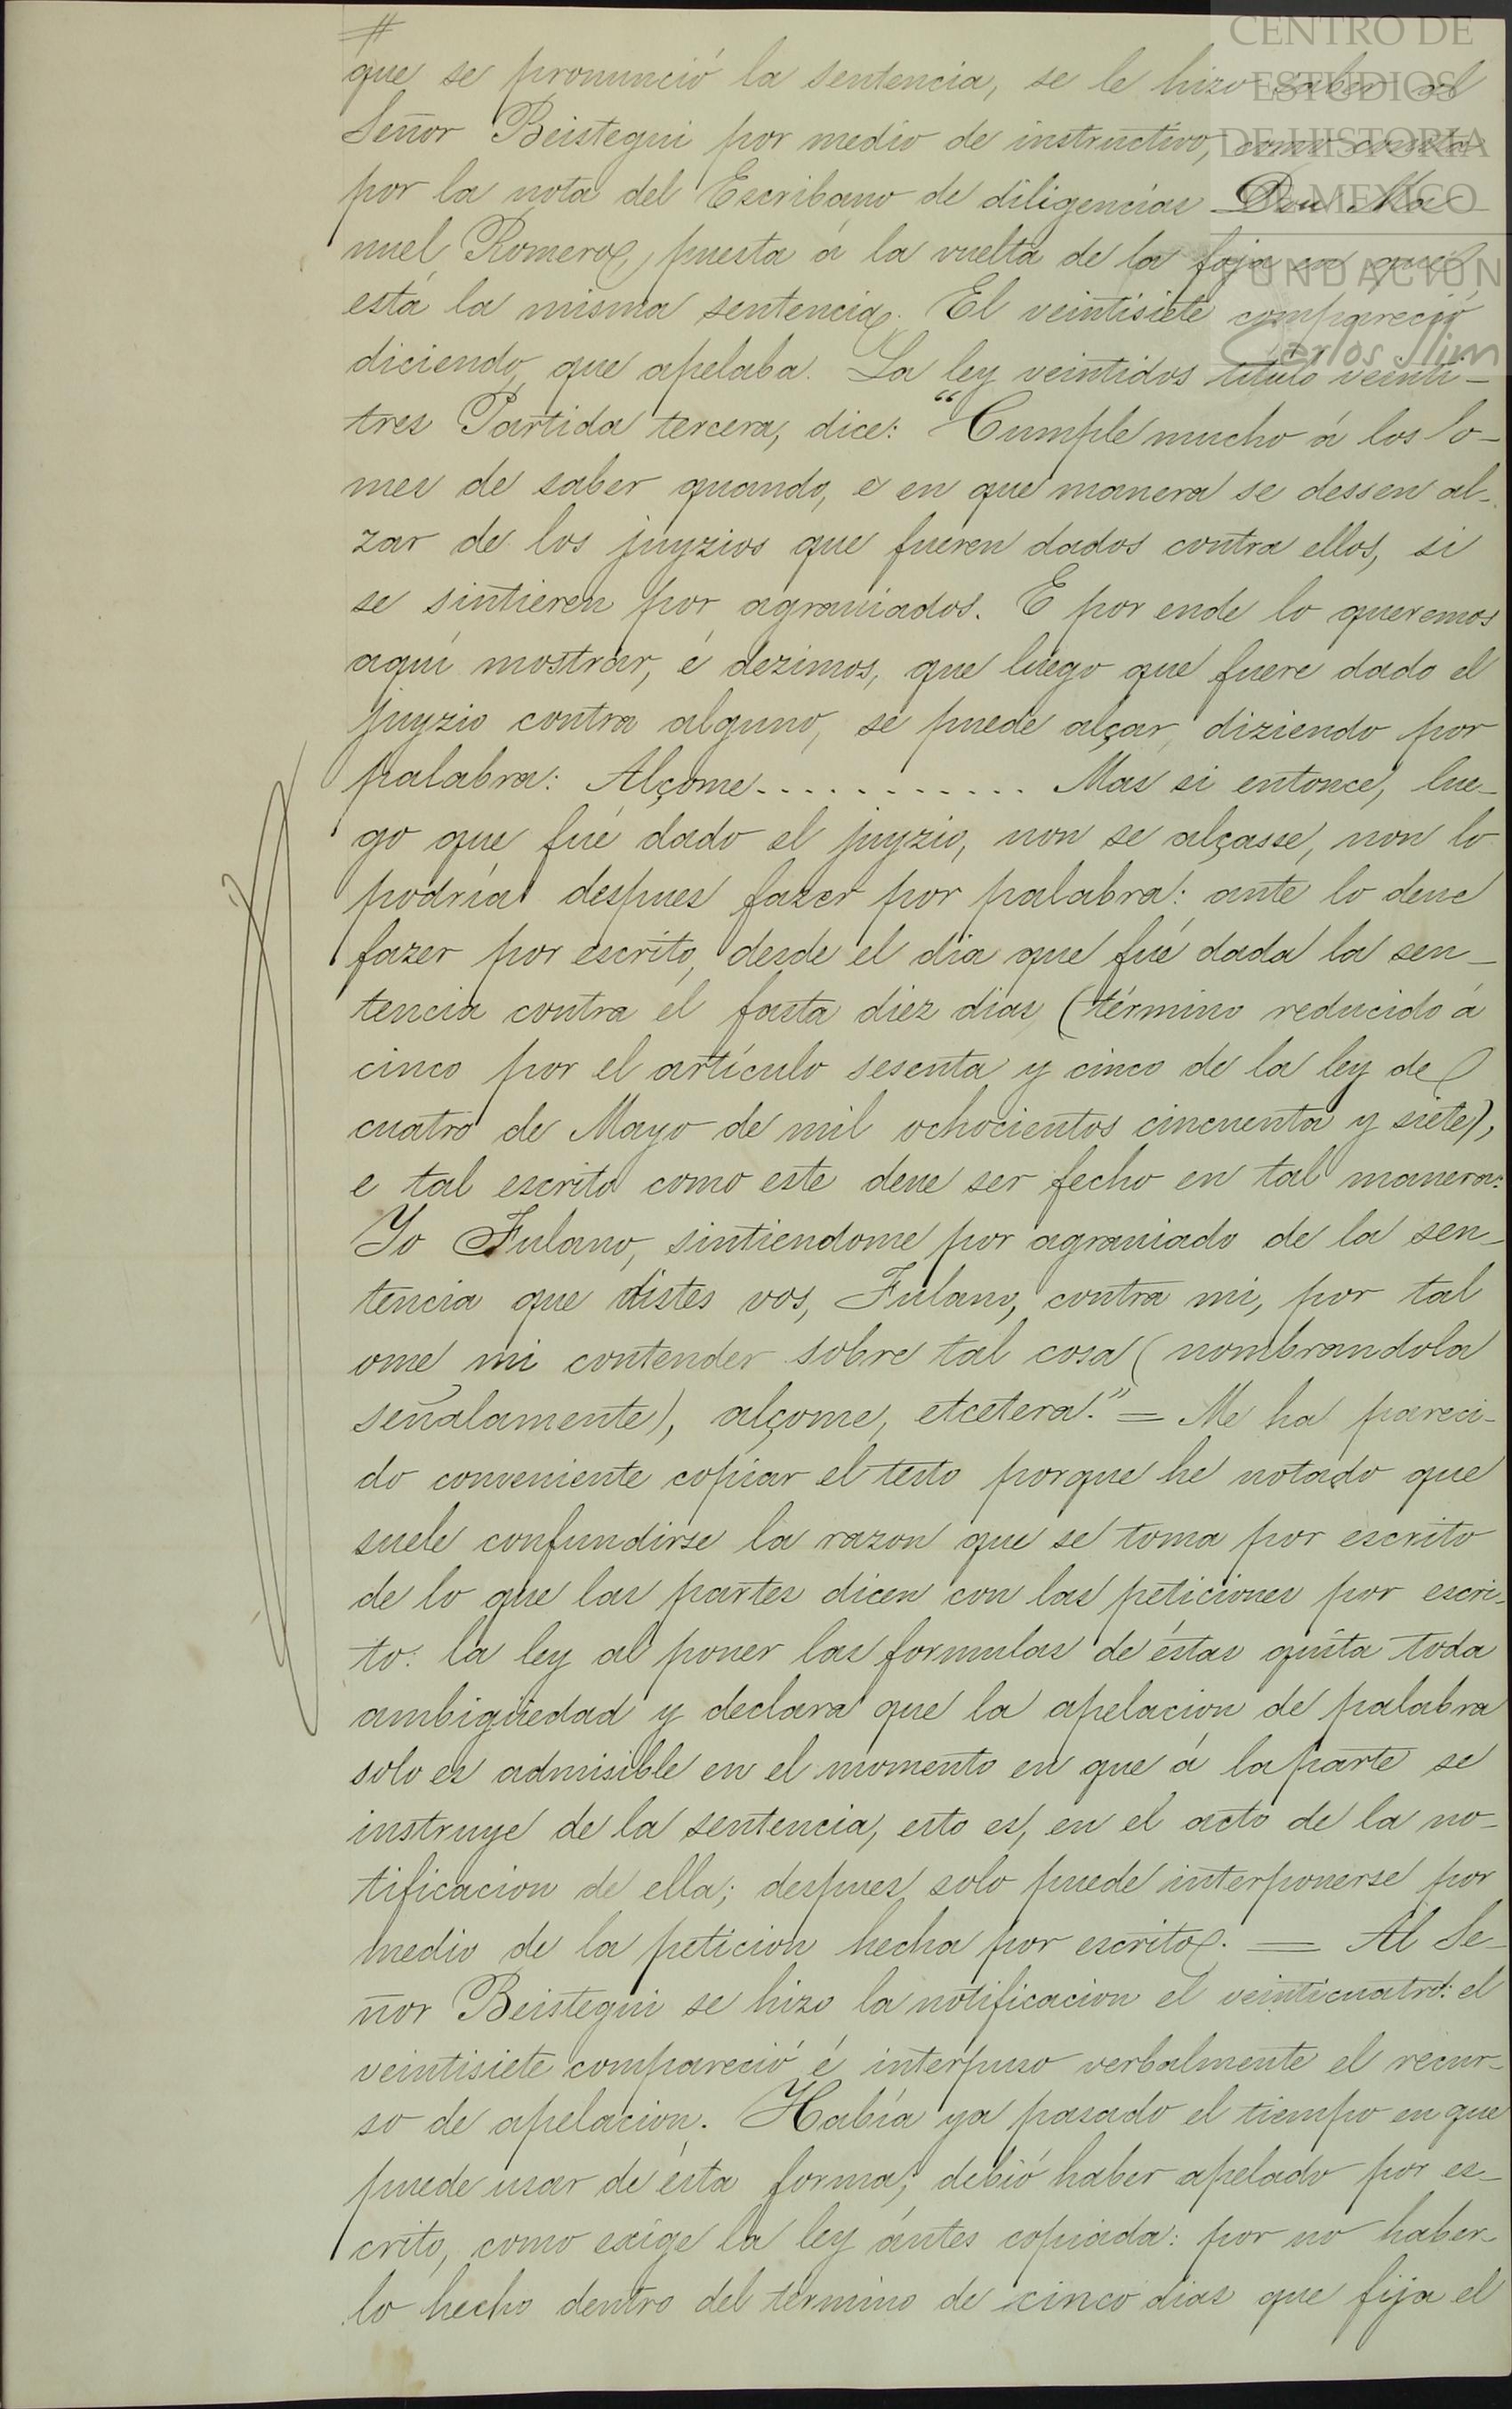 CENTRO DE
ESTUDIOS
DE HISTORIA
DE MEXICO
FUNDACIÓN
Carlos Slim
que se pronunció la sentencia, se le hizo saber al
Señor Beistegui por medio de instructivo, como consta
por la nota del Escribano de diligencias Don Ma-
nuel Romero, puesta á la vuelta de la foja en que
está la misma sentencia. El veintisiete compareció
diciendo, que apelaba. La ley veintidos título veinti-
tres Partida tercera, dice: "Cumple mucho á los o-
mes de saber quando, e en que manera se dessen al-
zar de los juyzios que fueren dados contra ellos, si
se sintieren por agraviados. E por ende lo queremos
aquí mostrar, é dezimos, que luego que fuere dado el
juyzio contra alguno, se puede alçar, diziendo por
palabra: Alçome............ Mas si entonce, lue-
go que fué dado el juyzio, non se alçasse, non lo
podría despues fazer por palabra: ante lo deue
fazer por escrito, desde el dia que fué dada la sen-
tencia contra él fasta diez dias (término reducido á
cinco por el artículo sesenta y cinco de la ley de
cuatro de Mayo de mil ochocientos cincuenta y siete),
e tal escrito como este deue ser fecho en tal manera:
Yo Fulano, sintiendome por agraviado de la sen-
tencia que distes vos, Fulano, contra mi, por tal
ome mi contender sobre tal cosa (nombrandola
señalamente), alçome, etcetera." = Me ha pareci-
do conveniente copiar el testo porque he notado que
suele confundirse la razon que se toma por escrito
de lo que las partes dicen con las peticiones por escri-
to: la ley al poner las formulas de éstas quita toda
ambigüedad y declara que la apelacion de palabra
solo es admisible en el momento en que á la parte se
instruye de la sentencia, esto es, en el acto de la no-
tificacion de ella; despues solo puede interponerse por
medio de la peticion hecha por escrito. = Al Se-
ñor Beistegui se hizo la notificacion el veinticuatro: el
veintisiete compareció é interpuso verbalmente el recur-
so de apelacion. Había ya pasado el tiempo en que
puede usar de ésta forma; debió haber apelado por es-
crito, como exige la ley ántes copiada: por no haber-
lo hecho dentro del término de cinco dias que fija el